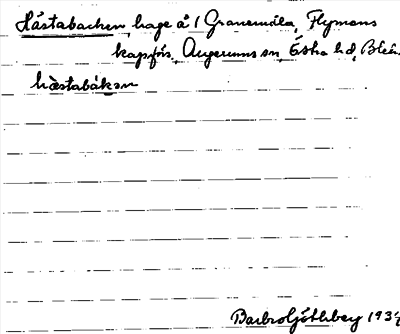 Hästabacken, hage å 1 Granemåla, Flymens
kapfös, Augerums sn Östra hd, Blek.
hæstabákan
Barbro Ljóthberg 1937